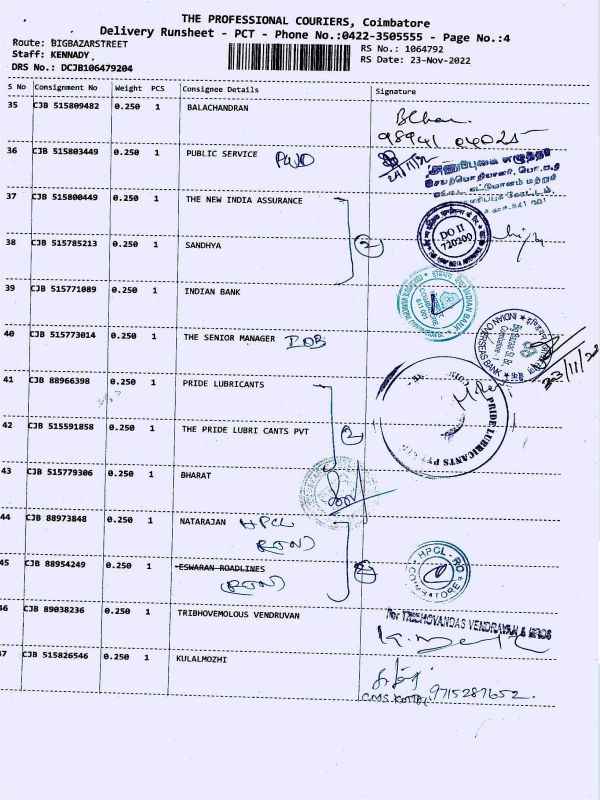 THE PROFESSIONAL COURIERS, Coimbatore
Delivery Runsheet - PCT - Phone No.:0422-3505555 - Page No.:4
Route: BIGBAZARSTREET
Staff: KENNADY
DRS No.: DCJB106479204
RS No.: 1064792
RS Date: 23-Nov-2022
S No Consignment No Weight PCS Consignee Details Signature
35 CJB 515809482 0.250 1 BALACHANDRAN
98941 04025
36 CJB 515803449 0.250 1 PUBLIC SERVICE PWD
37 CJB 515800449 0.250 1 THE NEW INDIA ASSURANCE
DO II
720200
38 CJB 515785213 0.250 1 SANDHYA 2
39 CJB 515771089 0.250 1 INDIAN BANK
INDIAN BANK
40 CJB 515773014 0.250 1 THE SENIOR MANAGER IOB
INDIAN OVERSEAS BANK
23/11/22
41 CJB 88966398 0.250 1 PRIDE LUBRICANTS
PRIDE LUBRICANTS PVT LTD
42 CJB 515591858 0.250 1 THE PRIDE LUBRI CANTS PVT 2
43 CJB 515779306 0.250 1 BHARAT
44 CJB 88973848 0.250 1 NATARAJAN HPCL
HPCL - RO
COIMBATORE
45 CJB 88954249 0.250 1 ESWARAN ROADLINES 2
46 CJB 89038236 0.250 1 TRIBHOVEMOLOUS VENDRUVAN
For TRIBHOVANDAS VENDRAVAN & BROS
47 CJB 515826546 0.250 1 KULALMOZHI
9715287652